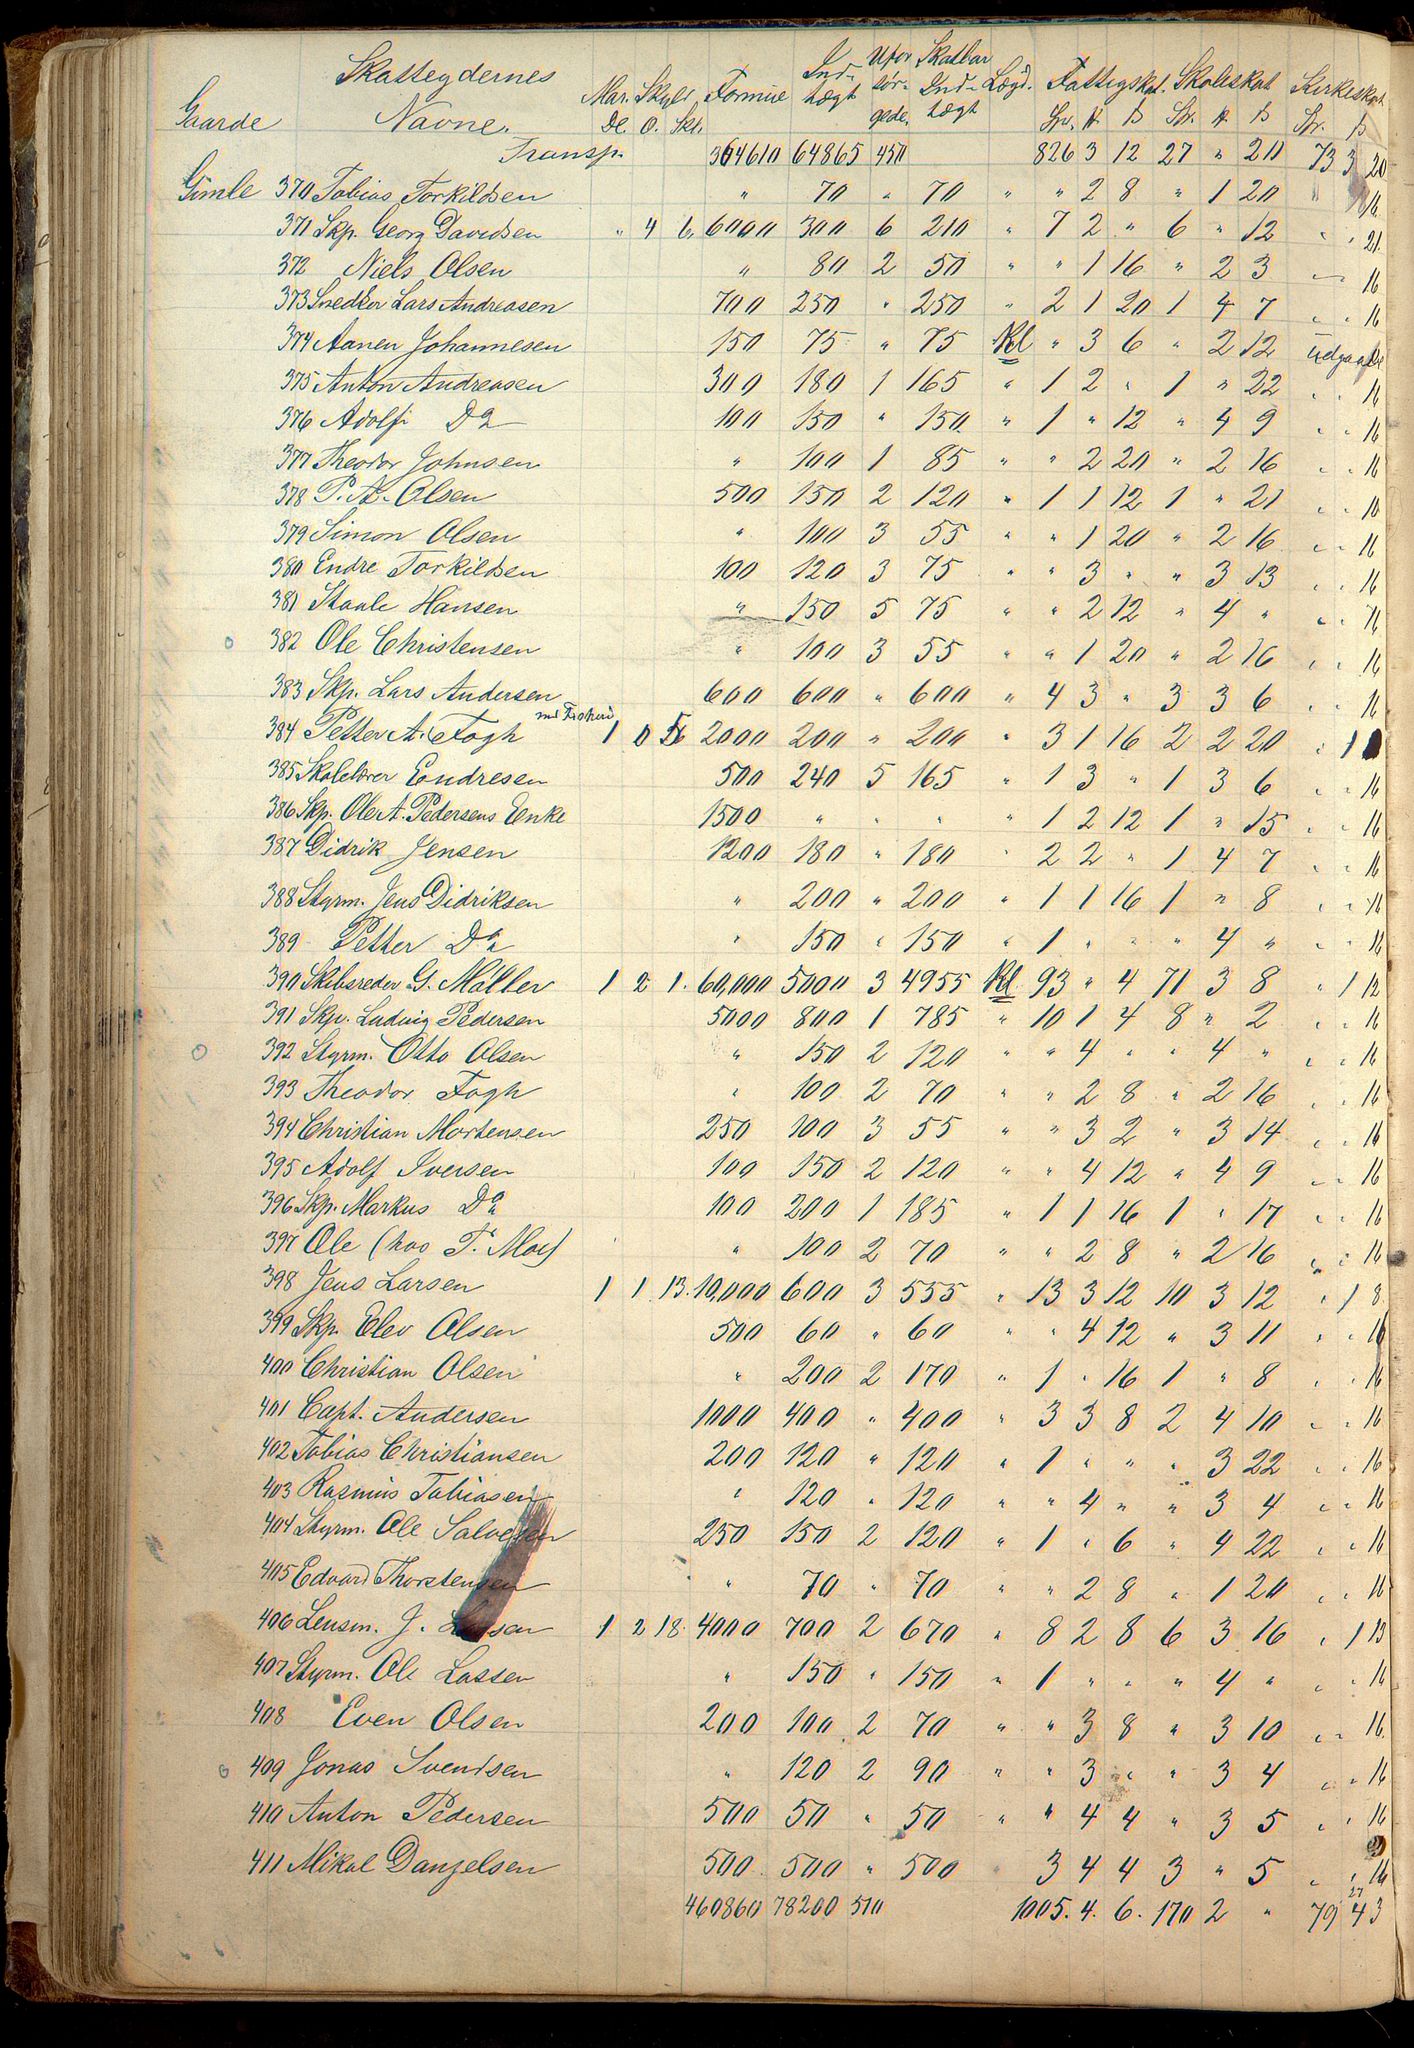 Skatteydernes Mar. Skyld Formue Ind- Ufor Skatbar Lægd. Fattigskat. Skoleskat Kirkeskat
Gaarde Navne. Dl. O. Skl. tægt sør- Ind- Sp. # ß Sp. # ß Sp. ß
gede. tægt
Transp. 364610 64865 450 826 3 12 27 " 20 73 3 20
Gimle 370 Tobias Torkildsen " 70 " 70 " " 2 8 " 1 20 16
371 Skp. Georg Davidsen " 4 6 6000 300 6 210 " 7 2 " 6 " 12 " " 21
372 Niels Olsen " 80 2 50 " " 1 16 " 2 3 " 16
373 Snedker Lars Andreasen 700 250 " 250 " 2 1 20 1 4 7 " " 16
374 Aanen Johannesen 150 75 " 75 Kl " 3 6 " 2 12 udgaaede
375 Anton Andreasen 300 180 1 165 " 1 2 " 1 " 22 " " 16
376 Adolf Do 100 150 " 150 " 1 " 12 " 4 9 " " 16
377 Theodor Johnsen " 100 1 85 " " 2 20 " 2 16 " " 16
378 P. A. Olsen 500 150 2 120 " 1 1 12 1 " 21 " " 16
379 Simon Olsen " 100 3 55 " " 1 20 " 2 16 " " 16
380 Endre Torkildsen 100 120 3 75 " " 3 " " 3 13 " " 16
381 Staale Hansen " 150 5 75 " " 2 12 " 4 " " " 16
382 Ole Christensen " 100 3 55 " " 1 20 " 2 16 " " 16
383 Skp. Lars Andersen 600 600 " 600 " 4 3 " 3 3 6 " " 16
384 Petter A. Fogh med Fiskeri 1 0 5 2000 200 " 200 " 3 1 16 2 2 20 " 1
385 Skolelærer Endresen 500 240 5 165 " 1 3 " 1 3 6 " " 16
386 Skp. Ole A. Pedersens Enke 1500 " " " " 1 2 12 1 " 15 " " 16
387 Didrik Jensen 1200 180 " 180 " 2 2 " 1 4 7 " " 16
388 Styrm. Jens Didriksen " 200 " 200 " 1 1 16 1 " 8 " " 16
389 Petter Do " 150 " 150 " 1 " " " 4 " " " 16
390 Skibsreder G. Møller 1 2 1. 60,000 5000 3 4955 Kl 93 " 4 71 3 8 " 1 12
391 Skp. Ludvig Pedersen 5000 800 1 785 " 10 1 4 8 " 2 " " 16
392 Styrm. Otto Olsen " 150 2 120 " " 4 " " 4 " " " 16
393 Theodor Fogh " 100 2 70 " " 2 8 " 2 16 " " 16
394 Christian Mortensen 250 100 3 55 " " 3 2 " 3 14 " " 16
395 Adolf Iversen 100 150 2 120 " " 4 12 " 4 9 " " 16
396 Skp. Markus Do 100 200 1 185 " 1 1 16 1 " 17 " " 16
397 Ole (hos T. Moe) " 100 2 70 " " 2 8 " 2 16 " " 16
398 Jens Larsen 1 1 13. 10,000 600 3 555 " 13 3 12 10 3 12 " 1 8
399 Skp. Elev Olsen 500 60 " 60 " " 4 12 " 3 11 " " 16
400 Christian Olsen " 200 2 170 " 1 " 16 1 " 8 " " 16
401 Capt. Andersen 1000 400 " 400 " 3 3 8 2 4 10 " " 16
402 Tobias Christiansen 200 120 " 120 " 1 " " " 3 22 " " 16
403 Rasmus Tobiasen " 120 " 120 " " 4 " " 3 4 " " 16
404 Styrm. Ole Salvesen 250 150 2 120 " 1 " 6 " 4 22 " " 16
405 Edvard Thorstensen " 70 " 70 " " 2 8 " 1 20 " " 16
406 Lensm. J. Larsen 1 2 18. 4000 700 2 670 " 8 2 8 6 3 16 " 1 13
407 Styrm. Ole Lassen " 150 " 150 " 1 " " " 4 " " " 16
408 Even Olsen 200 100 2 70 " " 3 8 " 3 10 " " 16.
409 Jonas Svendsen " 120 2 90 " " 3 " " 3 4 " " 16
410 Anton Pedersen 500 50 " 50 " " 4 4 " 3 5 " " 16
411 Mikal Danjelsen 500 500 " 500 " 3 4 4 3 " 5 " " 16
460860 78200 510 1005. 4. 6. 170 2 " 79 4 3
27